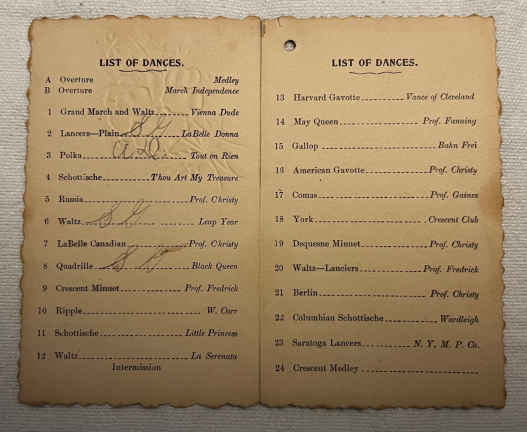 LIST OF DANCES.
A Overture Medley
B Overture March Independence
1 Grand March and Waltz Vienna Dude
2 Lancers—Plain S. G. LaBelle Donna
3 Polka A. D. Tout on Rien
4 Schottische Thou Art My Treasure
5 Russia Prof. Christy
6 Waltz S. G. Leap Year
7 LaBelle Canadian Prof. Christy
8 Quadrille Black Queen
9 Crescent Minuet Prof. Fredrick
10 Ripple W. Carr
11 Schottische Little Princess
12 Waltz La Serenata
Intermission
LIST OF DANCES.
13 Harvard Gavotte Vance of Cleveland
14 May Queen Prof. Fanning
15 Gallop Bahn Frei
16 American Gavotte Prof. Christy
17 Comas Prof. Gaines
18 York Crescent Club
19 Duquesne Minuet Prof. Christy
20 Waltz—Lanciers Prof. Fredrick
21 Berlin Prof. Christy
22 Columbian Schottische Wardleigh
23 Saratoga Lancers N. Y. M. P. Co.
24 Crescent Medley